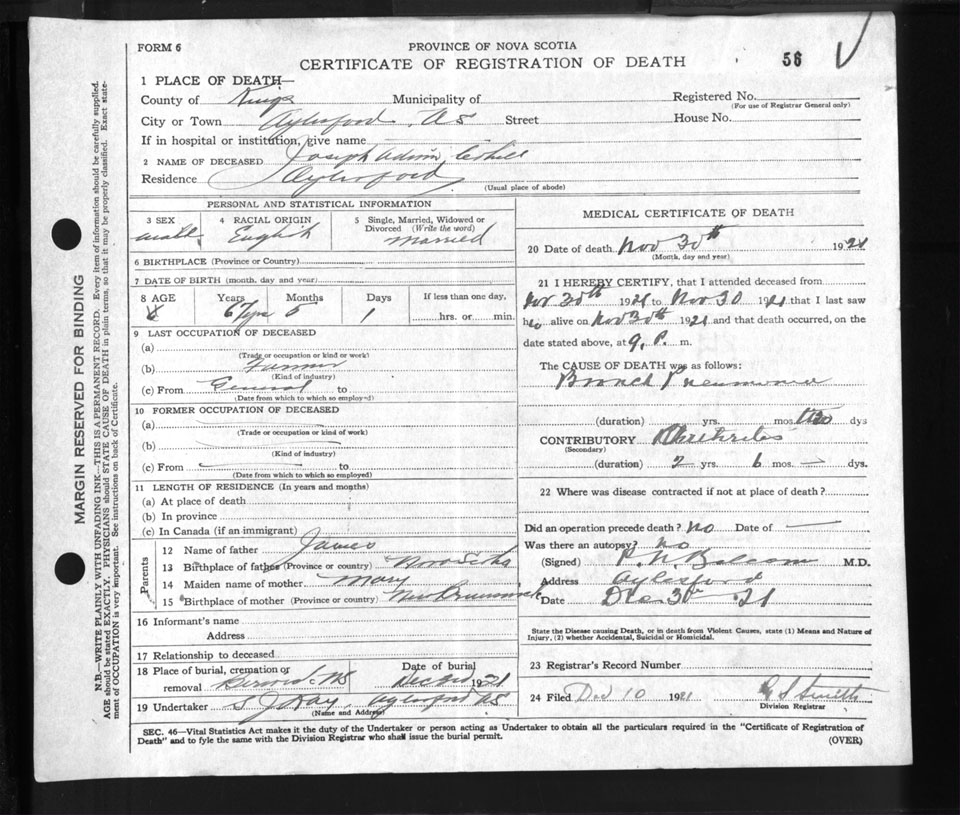 FORM 6
PROVINCE OF NOVA SCOTIA
CERTIFICATE OF REGISTRATION OF DEATH
56
1 PLACE OF DEATH—
County of Kings Municipality of Registered No.
(For use of Registrar General only)
City or Town Aylesford, NS Street House No.
If in hospital or institution, give name
2 NAME OF DECEASED Joseph
Residence Aylesford
(Usual place of abode)
PERSONAL AND STATISTICAL INFORMATION
3 SEX 4 RACIAL ORIGIN 5 Single, Married, Widowed or
Divorced (Write the word)
male English married
6 BIRTHPLACE (Province or Country)
7 DATE OF BIRTH (month, day and year)
8 AGE Years Months Days If less than one day,
67 yrs 5 1 hrs. or min.
9 LAST OCCUPATION OF DECEASED
(a)
(Trade or occupation or kind or work)
(b) Farmer
(Kind of industry)
(c) From General to
(Date from which to which so employed)
10 FORMER OCCUPATION OF DECEASED
(a)
(Trade or occupation or kind of work)
(b)
(Kind of industry)
(c) From to
(Date from which to which so employed)
11 LENGTH OF RESIDENCE (In years and months)
(a) At place of death
(b) In province
(c) In Canada (if an immigrant)
Parents
12 Name of father James
13 Birthplace of father (Province or country) Nova Scotia
14 Maiden name of mother Mary
15 Birthplace of mother (Province or country) New Brunswick
16 Informant's name
Address
17 Relationship to deceased
18 Place of burial, cremation or Date of burial
removal Berwick NS 1921
19 Undertaker Aylesford NS
(Name and Address)
MEDICAL CERTIFICATE OF DEATH
20 Date of death Nov 30th 1921
(Month, day and year)
21 I HEREBY CERTIFY, that I attended deceased from
Nov 30th 1921 to Nov 30 1921 that I last saw
h alive on Nov 30th 1921 and that death occurred, on
date stated above, at 9. P. m.
The CAUSE OF DEATH was as follows:
Bronch Pneumonia
(duration) yrs. mos. dys
CONTRIBUTORY
(Secondary)
(duration) 2 yrs. 6 mos. — dys.
22 Where was disease contracted if not at place of death?
Did an operation precede death? No Date of —
Was there an autopsy? No
(Signed) P. N. Balcom M.D.
Address Aylesford
Date Dec 30 21
State the Disease causing Death, or in death from Violent Causes, state (1) Means and Nature of
Injury, (2) whether Accidental, Suicidal or Homicidal.
23 Registrar's Record Number
24 Filed Dec 10 1921
Division Registrar
SEC. 46—Vital Statistics Act makes it the duty of the Undertaker or person acting as Undertaker to obtain all the particulars required in the "Certificate of Registration of
Death" and to fyle the same with the Division Registrar who shall issue the burial permit.
(OVER)
MARGIN RESERVED FOR BINDING
N.B.—WRITE PLAINLY WITH UNFADING INK—THIS IS A PERMANENT RECORD. Every item of information should be carefully supplied.
AGE should be stated EXACTLY. PHYSICIANS should STATE CAUSE OF DEATH in plain terms, so that it may be properly classified. Exact state-
ment of OCCUPATION is very important. See instructions on back of Certificate.